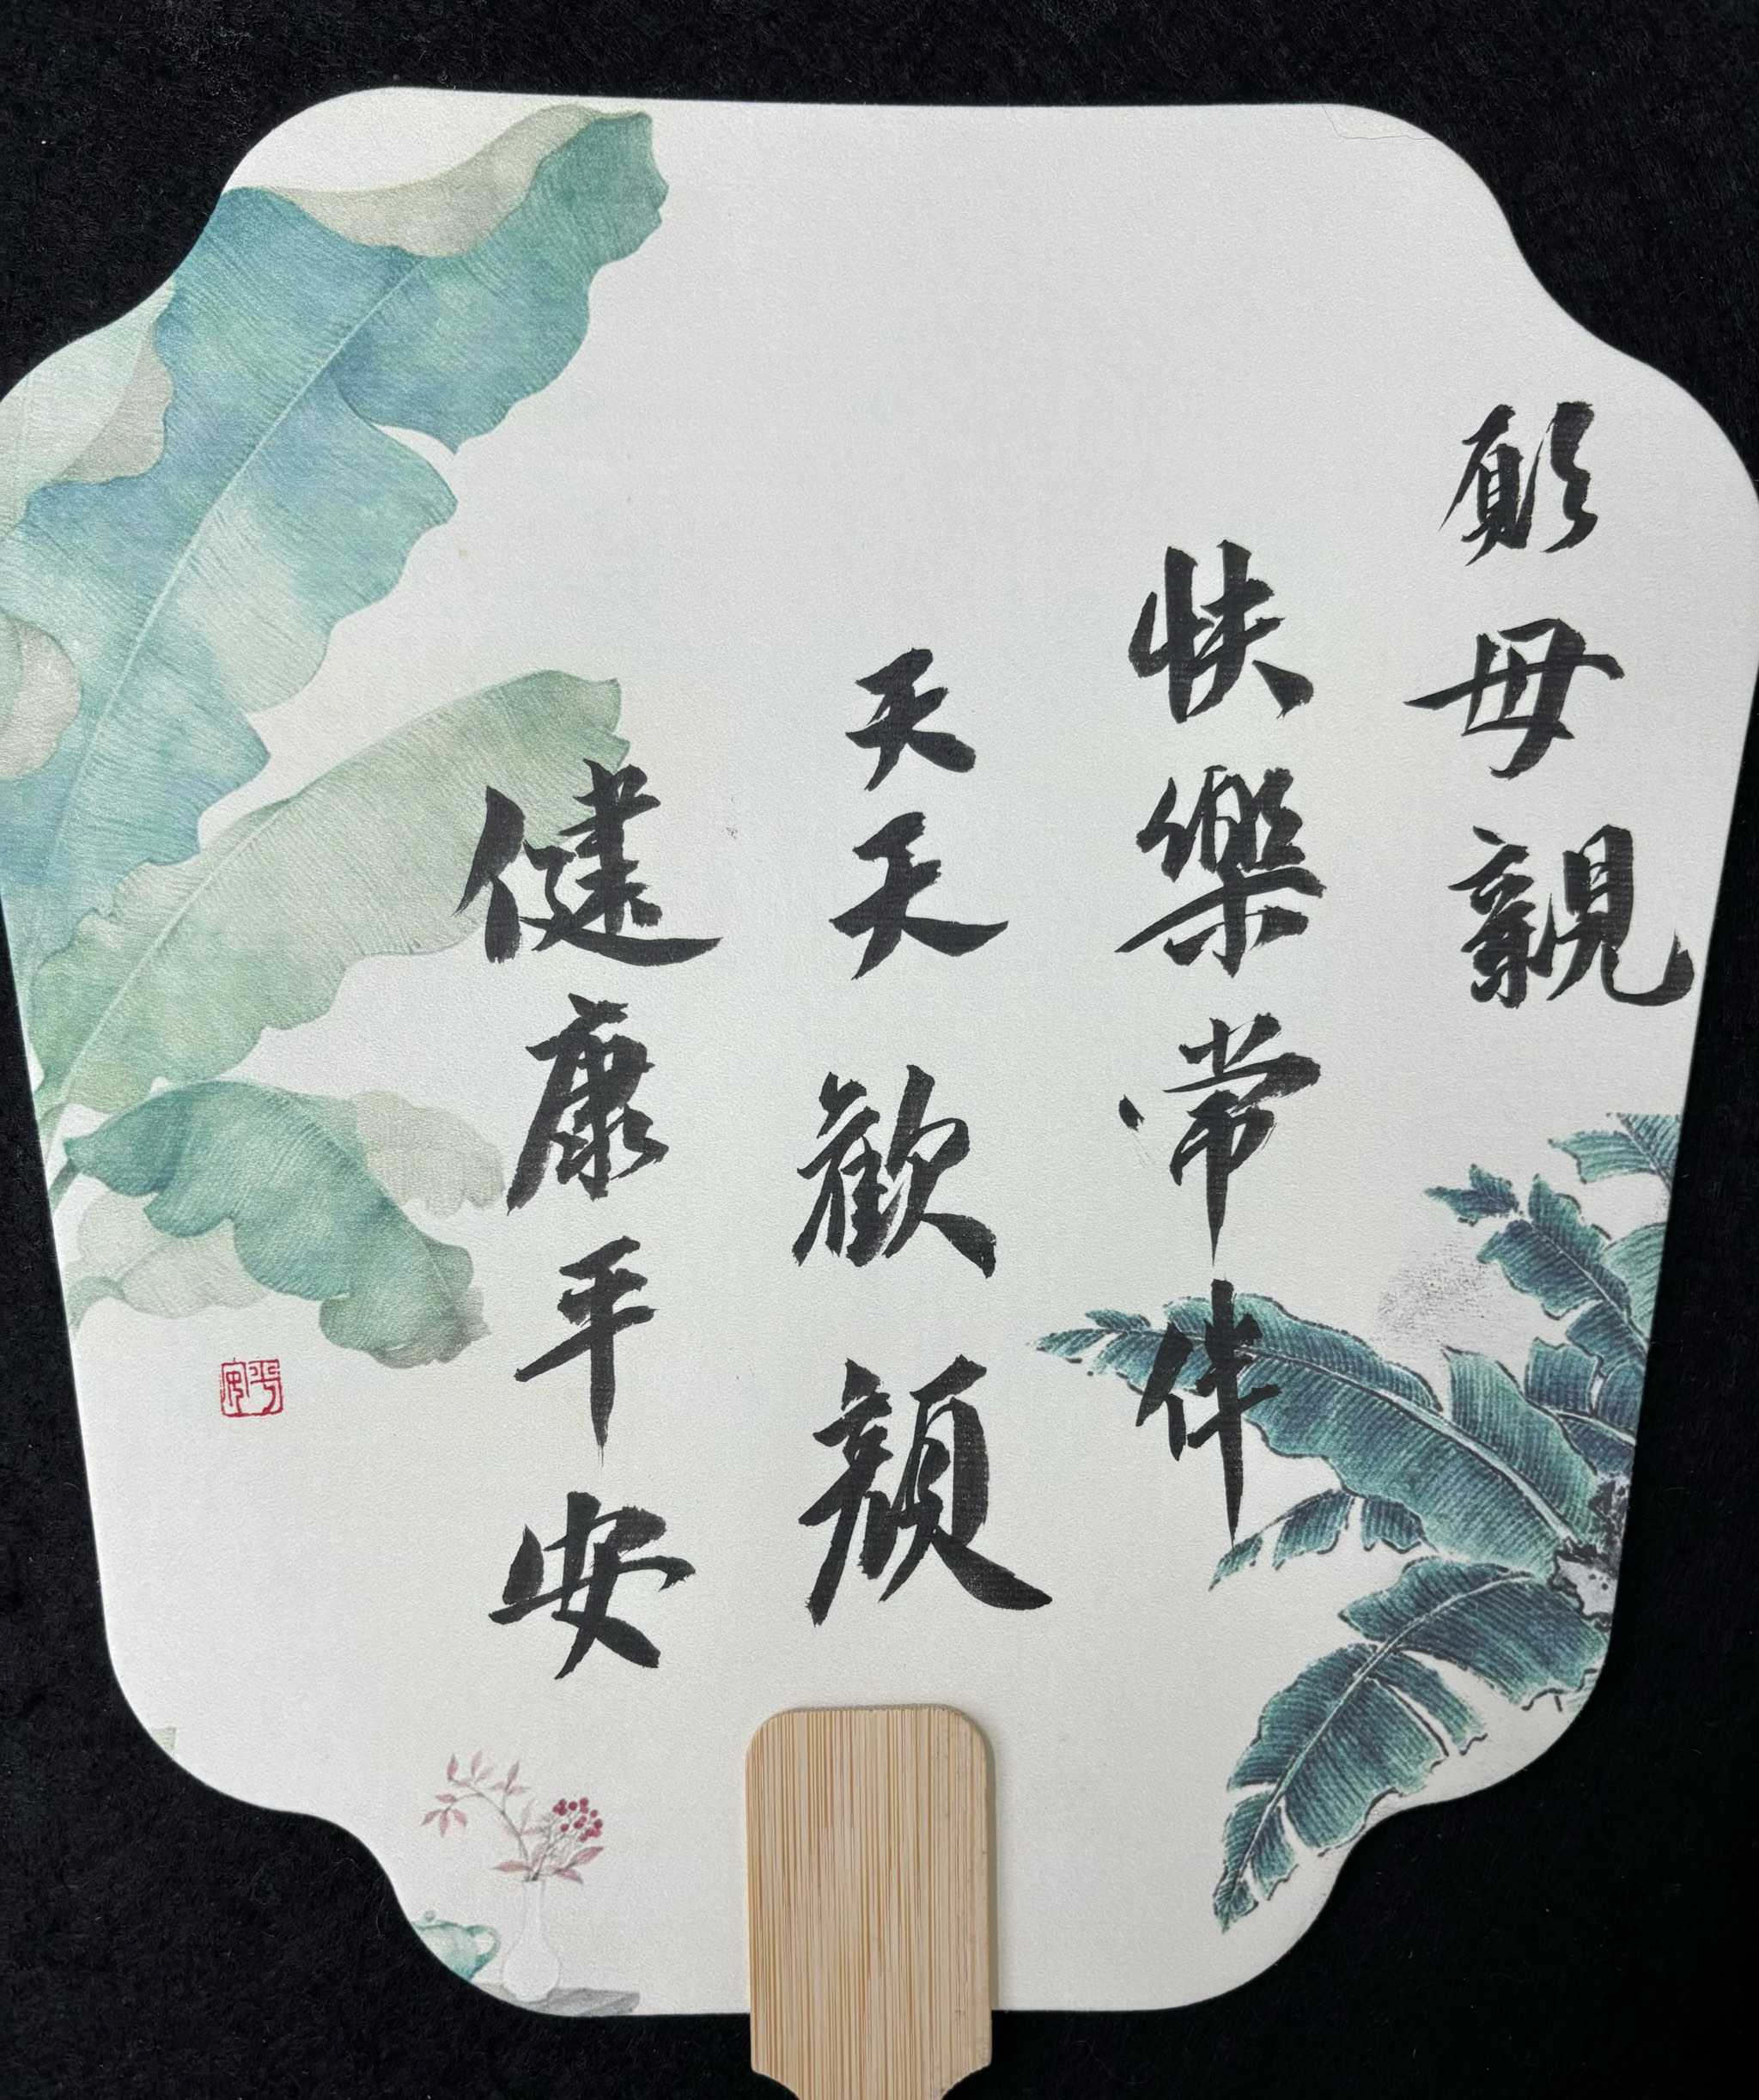 願母親
快樂常伴
天天歡顔
健康平安
平安